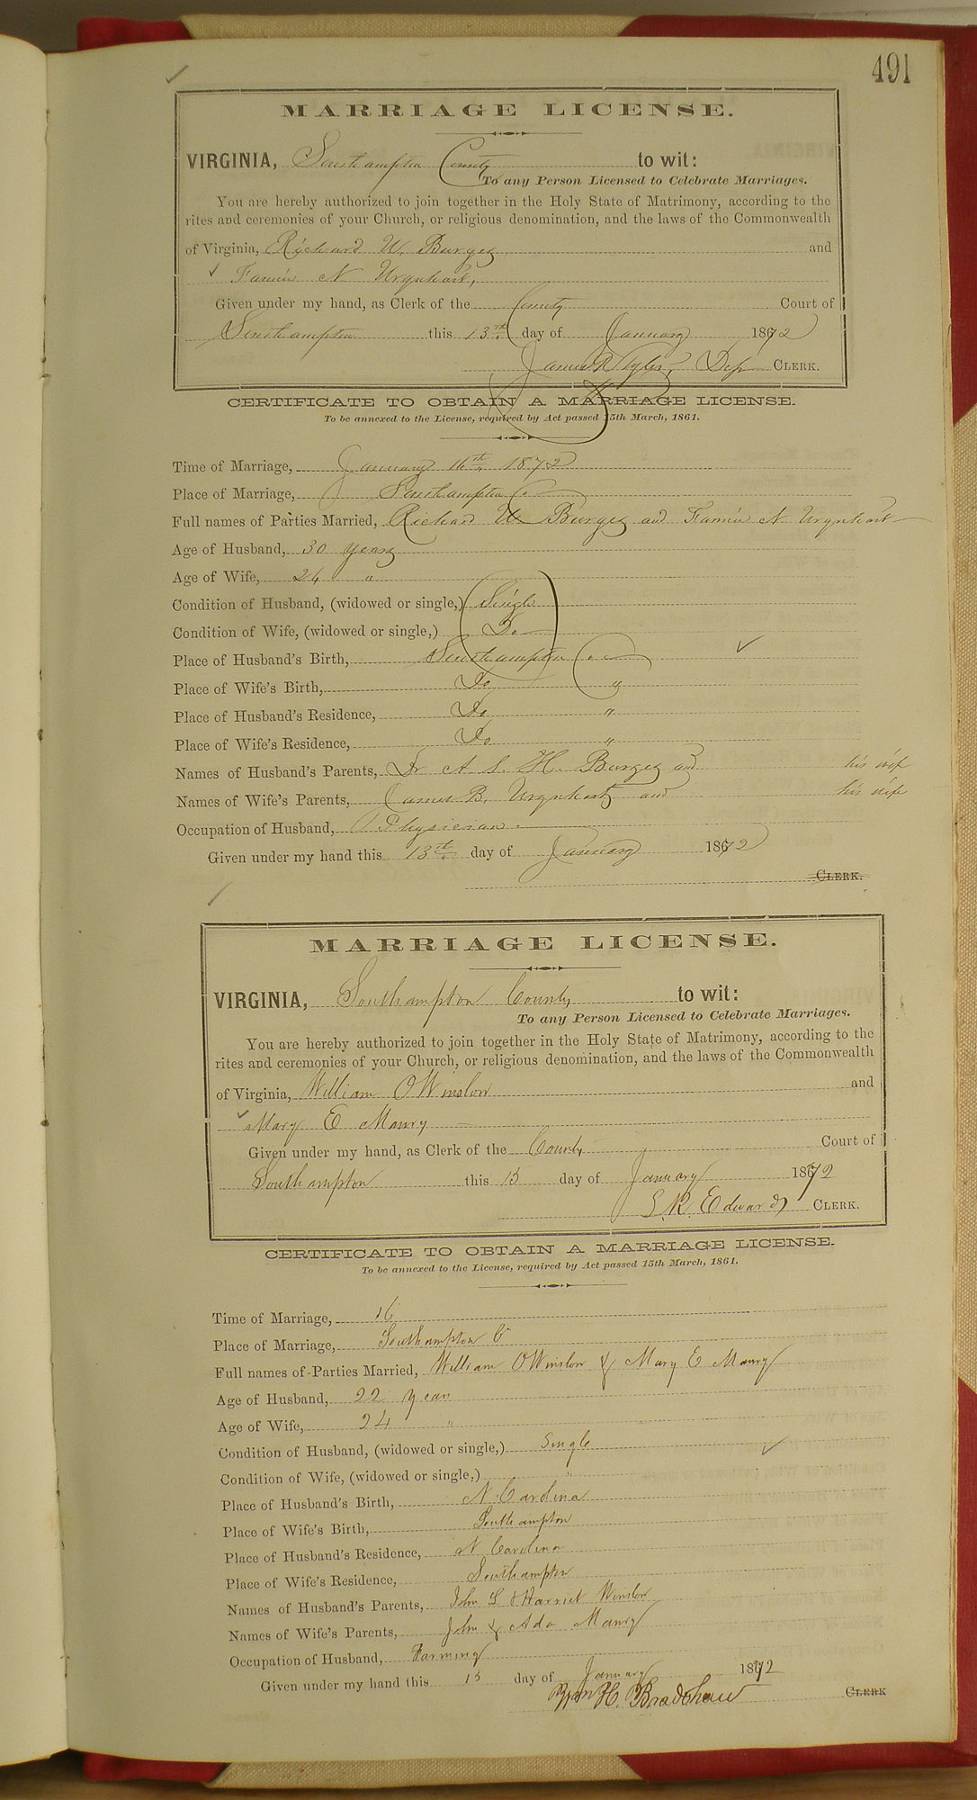 491
MARRIAGE LICENSE.
VIRGINIA, Southampton County to wit:
To any Person Licensed to Celebrate Marriages.
You are hereby authorized to join together in the Holy State of Matrimony, according to the
rites and ceremonies of your Church, or religious denomination, and the laws of the Commonwealth
of Virginia, Richard W. Burges and
Fannie N Urquhart,
Given under my hand, as Clerk of the County Court of
Southampton this 13th day of January 1872
James R Tyler, Dep CLERK.
CERTIFICATE TO OBTAIN A MARRIAGE LICENSE.
To be annexed to the License, required by Act passed 15th March, 1861.
Time of Marriage, January 16th 1872
Place of Marriage, Southampton Co
Full names of Parties Married, Richard W Burges and Fannie N Urquhart
Age of Husband, 30 years
Age of Wife, 24 "
Condition of Husband, (widowed or single,) Single
Condition of Wife, (widowed or single,) Do
Place of Husband's Birth, Southampton Co
Place of Wife's Birth, Do "
Place of Husband's Residence, Do "
Place of Wife's Residence, Do "
Names of Husband's Parents, Dr A S. H. Burges and his wife
Names of Wife's Parents, James B. Urquhart and his wife
Occupation of Husband, Physician
Given under my hand this 13th day of January 1872
CLERK.
MARRIAGE LICENSE.
VIRGINIA, Southampton County to wit:
To any Person Licensed to Celebrate Marriages.
You are hereby authorized to join together in the Holy State of Matrimony, according to the
rites and ceremonies of your Church, or religious denomination, and the laws of the Commonwealth
of Virginia, William O Winslow and
Mary E Maury
Given under my hand, as Clerk of the County Court of
Southampton this 13 day of January 1872
L. R. Edwards CLERK.
CERTIFICATE TO OBTAIN A MARRIAGE LICENSE.
To be annexed to the License, required by Act passed 15th March, 1861.
Time of Marriage, 16
Place of Marriage, Southampton C
Full names of Parties Married, William O Winslow & Mary E Maury
Age of Husband, 22 years
Age of Wife, 24 "
Condition of Husband, (widowed or single,) Single
Condition of Wife, (widowed or single,) "
Place of Husband's Birth, N Carolina
Place of Wife's Birth, Southampton
Place of Husband's Residence, N Carolina
Place of Wife's Residence, Southampton
Names of Husband's Parents, John L & Harriet Winslow
Names of Wife's Parents, John & Ada Maury
Occupation of Husband, Farming
Given under my hand this 13 day of January 1872
Wm H. Bradshaw CLERK